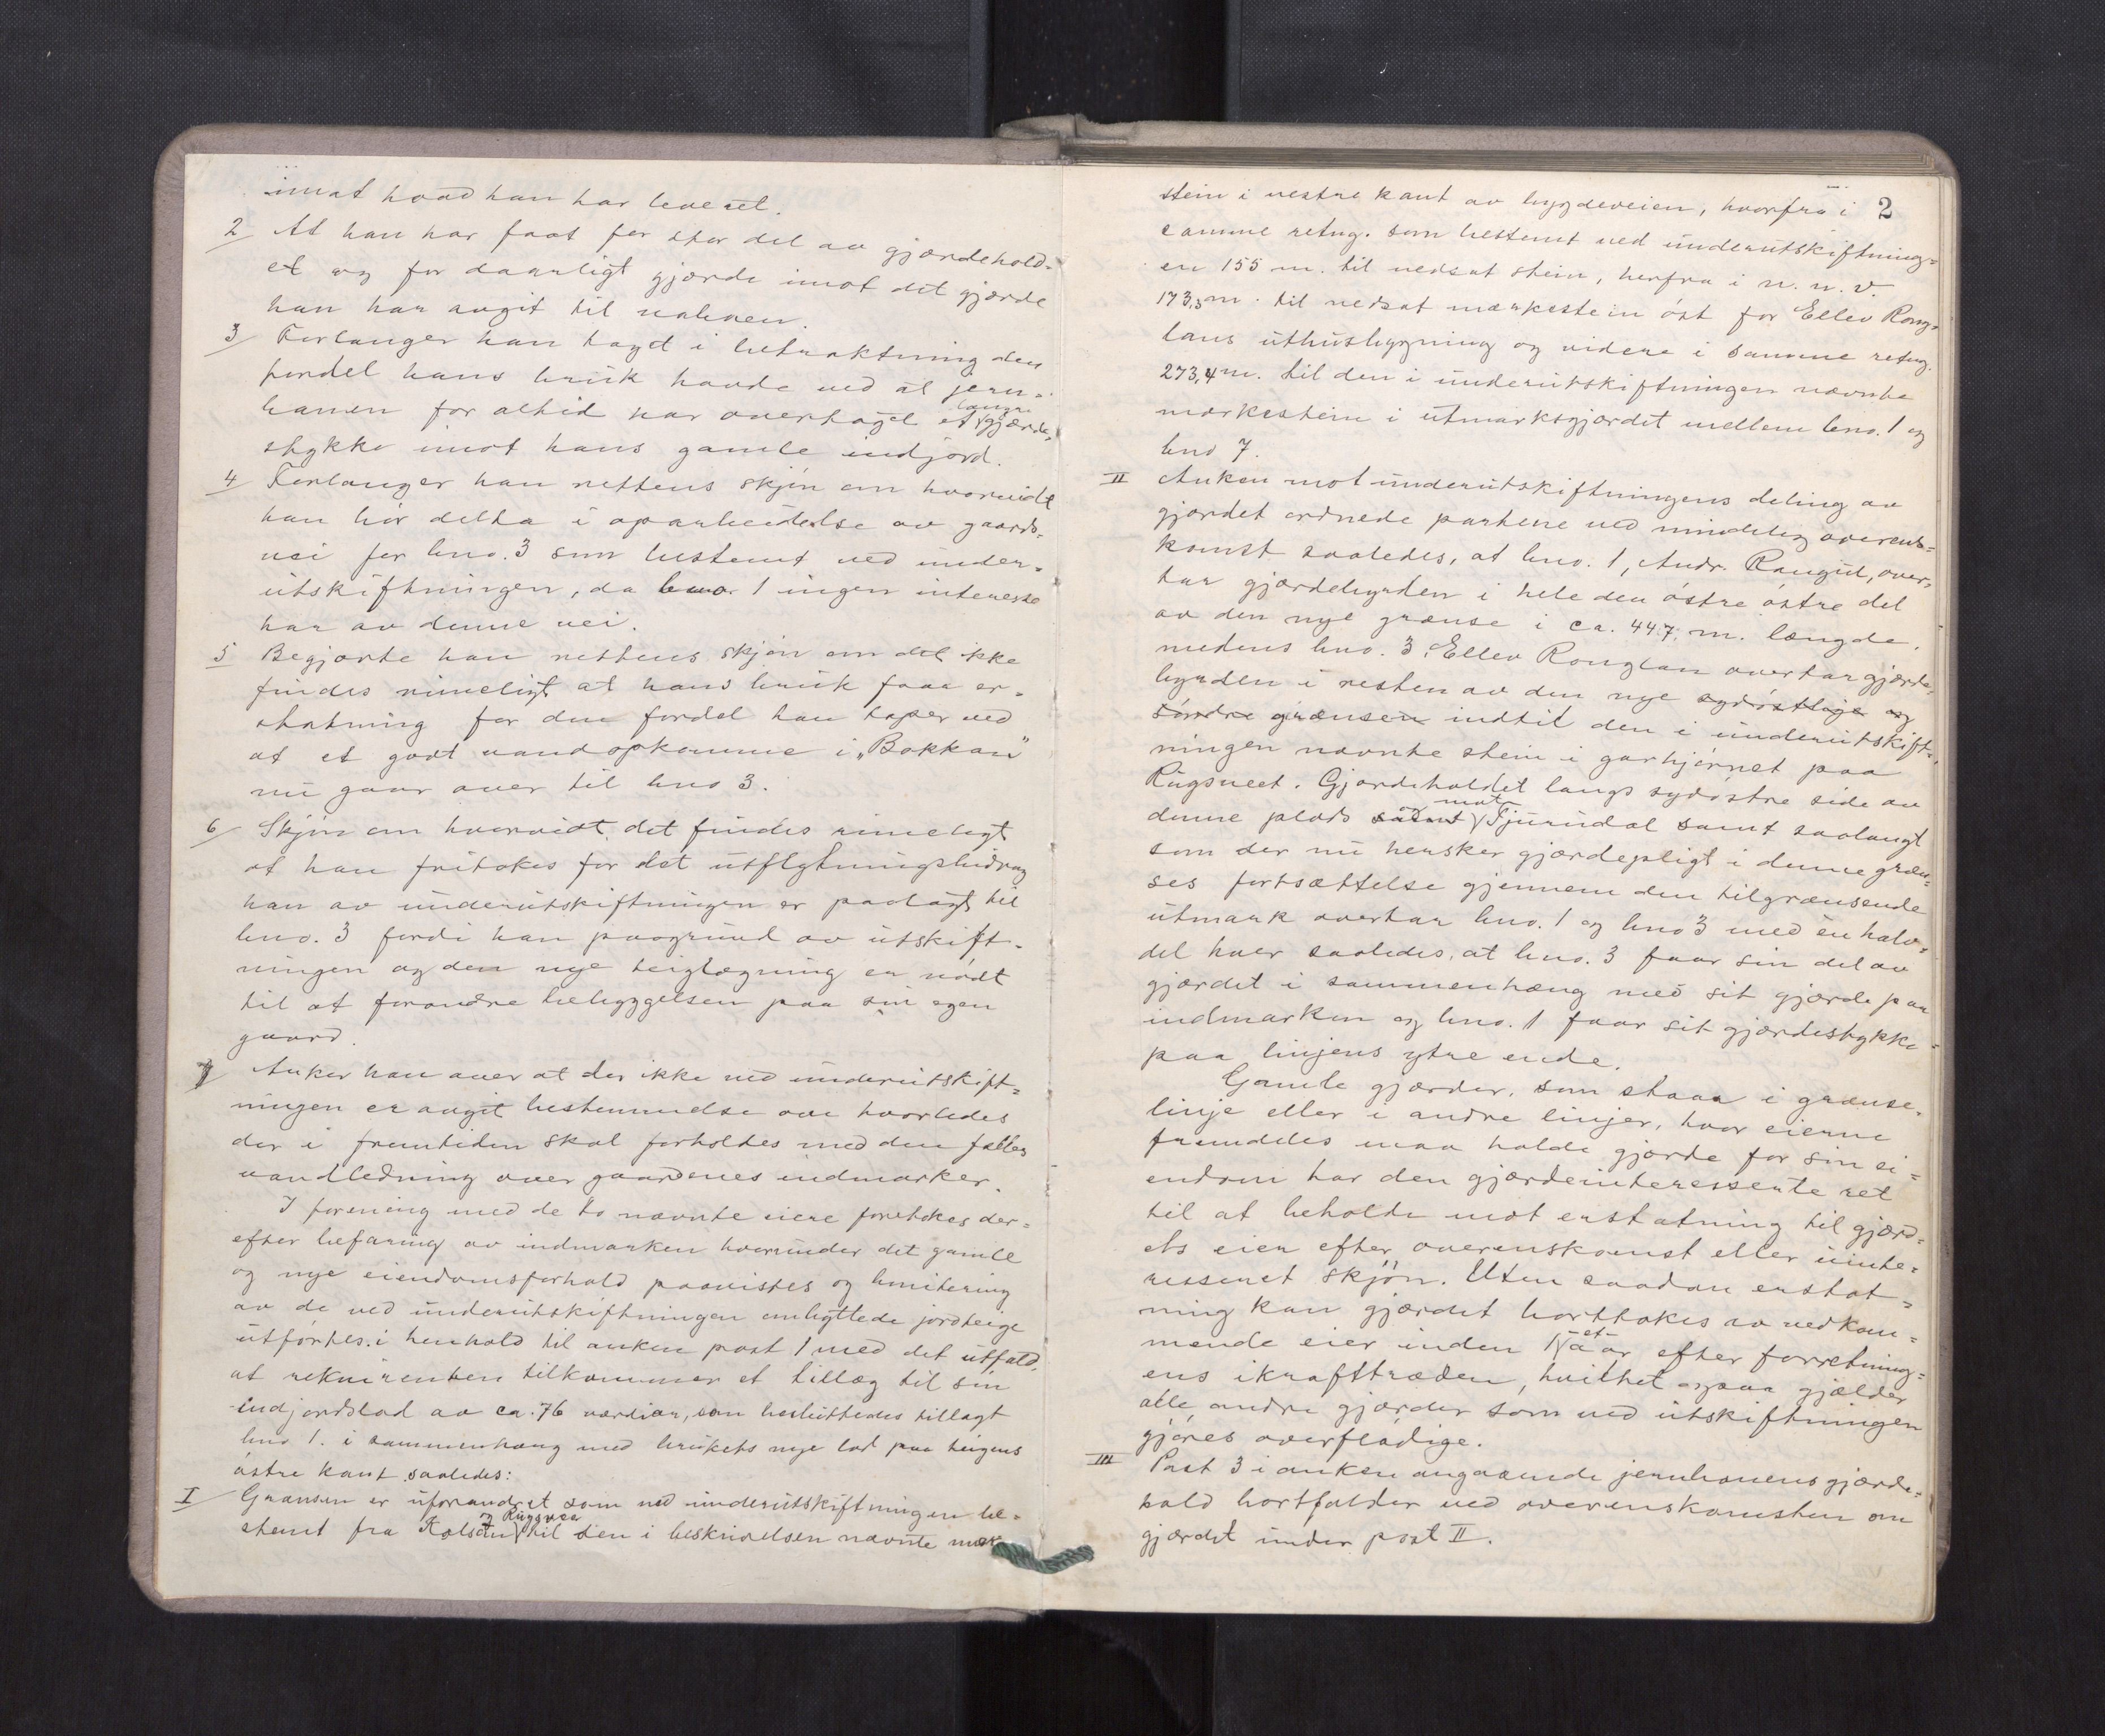 imot hvad han har leveret.
2 At han har faat for stor del av gjærdehold-
et og for daarligt gjærde imot det gjærde
han har avgit til naboen.
3 Forlanger han tagd i betraktning den
fordel hans bruk havde ved at jern-
banen for altid har overtaget et længre gjærde-
stykke imot hans gamle indjord.
4 Forlanger han rettens skjøn om hvorvidt
han bør delta i oparbeidelse av gaards-
vei for bno. 3 som bestemt ved under-
utskiftningen, da bno. 1 ingen interesse
har av denne vei.
5 Begjærte han rettens skjøn om det ikke
findes rimeligt at hans bruk faar er-
statning for den fordel han taper ved
at et godt vandopkomme i "Bakkan"
nu gaar over til bno 3.
6 Skjøn om hvorvidt det findes rimeligt
at han fritakes for det utflytningsbidrag
han av underutskiftningen er paalagt til
bno. 3 fordi han paagrund av utskift-
ningen og den nye teiglægning er nødt
til at forandre bebyggelsen paa sin egen
gaard.
7 Anker han over at der ikke ved underutskift-
ningen er avgit bestemmelse om hvorledes
der i fremtiden skal forholdes med den fælles
vandledning over gaardenes indmarker.
I forening med de to nævnte eiere foretokes der-
efter befaring av indmarken hvorunder det gamle
og nye eiendomsforhold paavistes og bonitering
av de ved underutskiftningen ombyttede jordteige
utførtes i henhold til anken post 1 med det utfald,
at rekvirenten tilkommer et tillæg til sin
indjordslod av ca. 76 værdiar, som besluttedes tillagt
bno 1. i sammenhæng med brukets nye lod paa teigens
østre kant saaledes:
I Grænsen er uforandret som ved underutskiftningen be-
stemt fra Kolsdn og Rugsvea til den i beskrivelsen nævnte merke
2
stein i vestre kant av bygdeveien, hvorfra i
samme retng. som bestemt ved underutskiftning-
en 155 m. til nedsat stein, herfra i n. n. v.
173,3 m. til nedsat merkestein øst for Ellev Rong-
lans uthusbygning og videre i samme retng.
273,4 m. til den i underutskiftningen nævnte
merkestein i utmarksgjærdet mellem bno. 1 og
bno 7.
II Anken mot underutskiftningens deling av
gjærdet ordnede partene ved mindelig overens-
komst saaledes, at bno. 1, Andr. Rangul, over-
tar gjærdebyrden i hele den østre østre del
av den nye grænse i ca. 447 m. længde,
medens bno. 3, Ellev Ronglan overtar gjærde-
byrden i resten av den nye sydøstlige og
søndre grænsen indtil den i underutskift-
ningen nævnte stein i garhjørnet paa
Rugsveet. Gjærdeholdet langs sydøstre side av
denne plads samt og mot Tjurudal samt saalangt
som der nu hersker gjærdepligt i denne græn-
ses fortsættelse gjennem den tilgrænsende
utmark overtar bno. 1 og bno 3 med en halv-
del hver saaledes, at bno. 3 faar sin del av
gjærdet i sammenhæng med sit gjærde paa
indmarken og bno. 1 faar sit gjærdestykke
paa linjens ytre ende.
Gamle gjærder, som staar i grænse-
linje eller i andre linjer, hvor eierne
fremdeles maa holde gjærde for sin ei-
endom har den gjærdeinteresserte ret
til at beholde mot erstatning til gjærd-
ets eier efter overenskomst eller uinte-
ressenet skjøn. Uten saadan erstat-
ning kan gjærdet borttakes av vedkom-
mende eier inden 1 - et - aar efter forretning-
ens ikrafttræden, hvilket ogsaa gjælder
alle andre gjærder som ved utskiftningen
gjøres overflødige.
III Post 3 i anken angaaende jernbanens gjærde-
hold bortfalder ved overenskomsten om
gjærdet under post II.